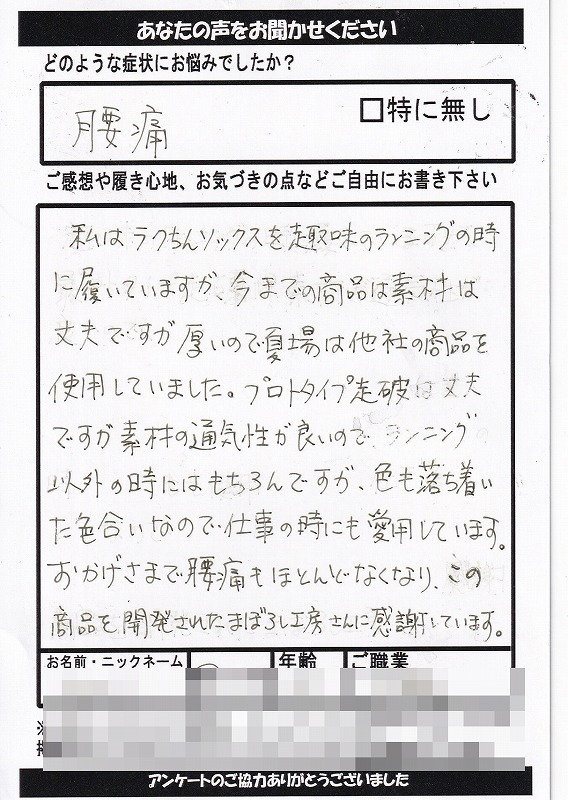 あなたの声をお聞かせください
どのような症状にお悩みでしたか？
腰痛
□特に無し
ご感想や履き心地、お気づきの点などご自由にお書き下さい
私はラクちんソックスを趣味のランニングの時
に履いていますが、今までの商品は素材は
丈夫ですが厚いので夏場は他社の商品を
使用していました。プロトタイプ走破は丈夫
ですが素材の通気性が良いので、ランニング
以外の時にはもちろんですが、色も落ち着い
た色合いなので仕事の時にも愛用しています。
おかげさまで腰痛もほとんどなくなり、この
商品を開発されたまぼろし工房さんに感謝しています。
お名前・ニックネーム
年齢
ご職業
※
アンケートのご協力ありがとうございました